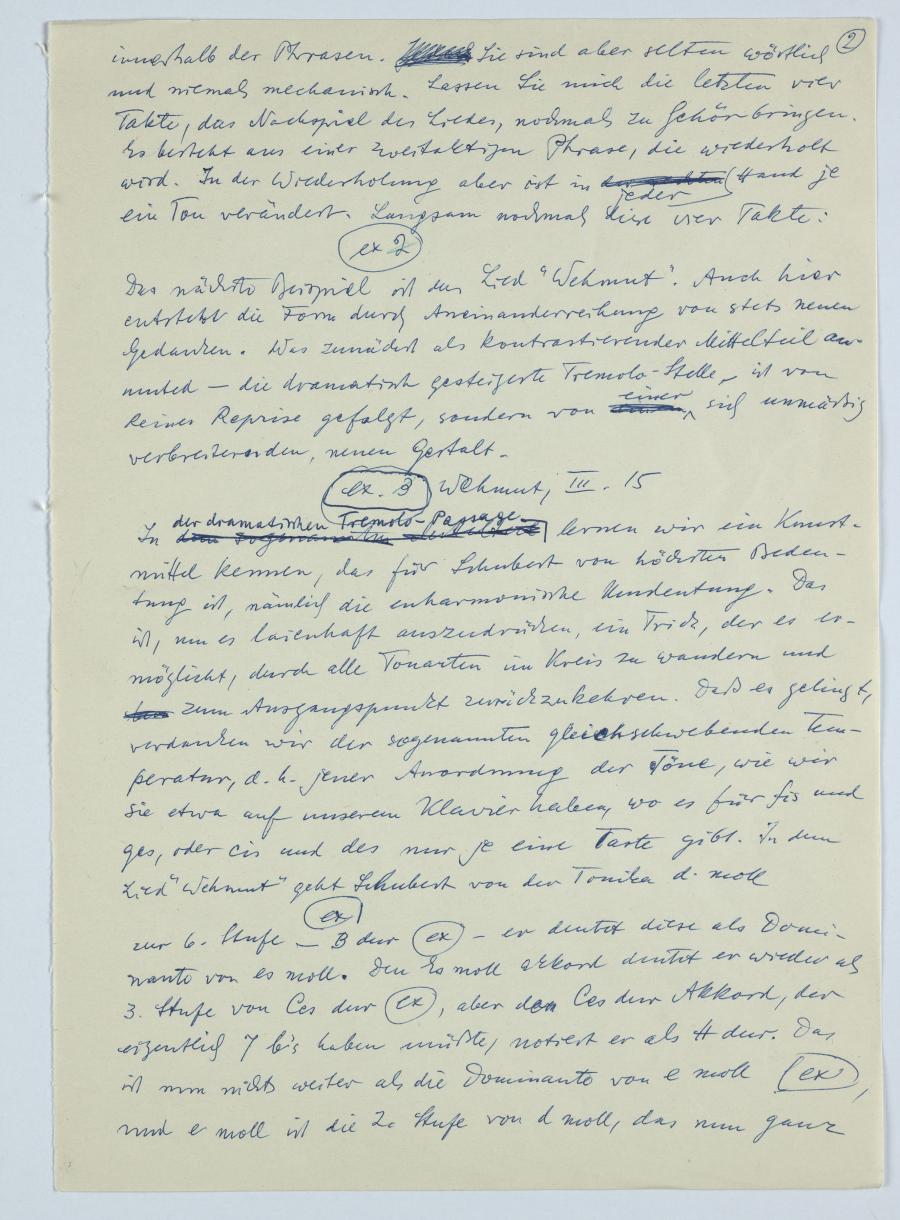 2
innerhalb der Phrasen. Sie sind aber selten wörtlich
und niemals mechanisch. Lassen Sie mich die letzten vier
Takte, das Nachspiel des Liedes, nochmals zu Gehör bringen.
Es besteht aus einer zweitaktigen Phrase, die wiederholt
wird. In der Wiederholung aber ist in jeder Hand je
ein Ton verändert. Langsam nochmals diese vier Takte:
ex 2
Das nächste Beispiel ist das Lied "Wehmut". Auch hier
entsteht die Form durch Aneinanderreihung von stets neuen
Gedanken. Was zunächst als kontrastierender Mittelteil an-
mutet – die dramatisch gesteigerte Tremolo-Stelle, ist von
keiner Reprise gefolgt, sondern von einer sich unmässig
verbreiternden, neuen Gestalt.
ex. 3 Wehmut, III. 15
In der dramatischen Tremolo-Passage lernen wir ein Kunst-
mittel kennen, das für Schubert von höchster Bedeu-
tung ist, nämlich die enharmonische Umdeutung. Das
ist, um es laienhaft auszudrücken, ein Trick, der es er-
möglicht, durch alle Tonarten im Kreis zu wandern und
zum Ausgangspunkt zurückzukehren. Daß es gelingt,
verdanken wir der sogenannten gleichschwebenden Tem-
peratur, d. h. jener Anordnung der Töne, wie wir
sie etwa auf unserem Klavier haben, wo es für fis und
ges, oder cis und des nur je eine Taste gibt. In dem
Lied "Wehmut" geht Schubert von der Tonika d moll
ex
zur 6. Stufe – B dur ex – er deutet diese als Domi-
nante von es moll. Den Es moll akkord deutet er wieder als
3. Stufe von Ces dur ex, aber den Ces dur Akkord, der
eigentlich 7 b's haben müßte, notiert er als H dur. Das
ist nun nichts weiter als die Dominante von e moll ex,
und e moll ist die 2. Stufe von d moll, das nun ganz